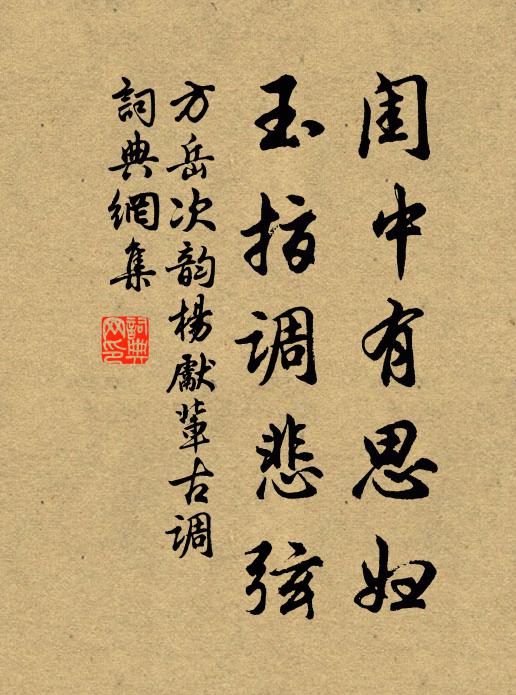 闺中有思妇
玉指调悲弦
方岳次韵楊獻輩古调
詞典網集
詞典网印